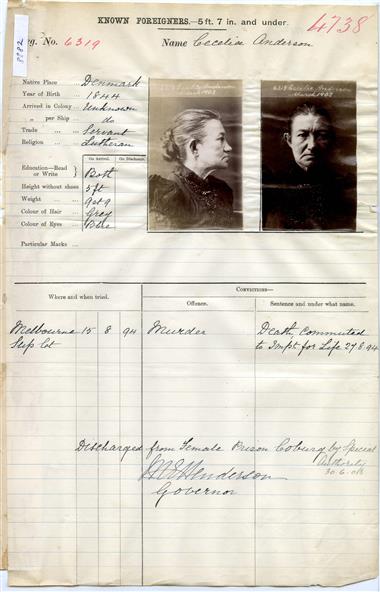 KNOWN FOREIGNERS.—5 ft. 7 in. and under.
4738
8982
Reg. No. 6319 Name Cecelia Anderson
Native Place Denmark
Year of Birth 1844
Arrived in Colony Unknown
„ per Ship do
Trade Servant
Religion Lutheran
On Arrival. On Discharge.
Education—Read or Write } Both
Height without shoes 5 ft
Weight
Colour of Hair Grey
Colour of Eyes Blue
Particular Marks
6319 Cecelia Anderson
March 1903
6319 Cecelia Anderson
March 1903
CONVICTIONS—
Where and when tried. Offence. Sentence and under what name.
Melbourne 15 8 94 Murder Death, Commuted
Sup Ct to Impt for Life 27 8 94
Discharged from Female Prison Coburg by Special
Authority
30.6.08
Henderson
Governor